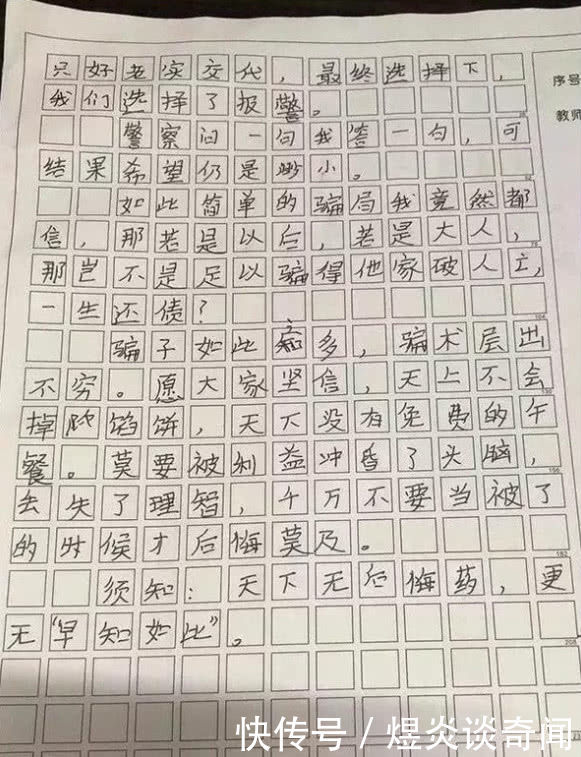 只好老实交代，最终选择下，
我们选择了报警。
警察问一句我答一句，可
结果希望仍是渺小。
如此简单的骗局我竟然都
信，那若是以后，若是大人，
那岂不是足以骗得他家破人亡，
一生还债？
骗子如此之多，骗术层出
不穷。愿大家坚信，天上不会
掉陷馅饼，天下没有免费的午
餐。莫要被利益冲昏了头脑，
去失了理智，千万不要当被了
的时候才后悔莫及。
须知：天下无后悔药，更
无“早知如此”。
序号
教师
快传号/煜炎谈奇闻